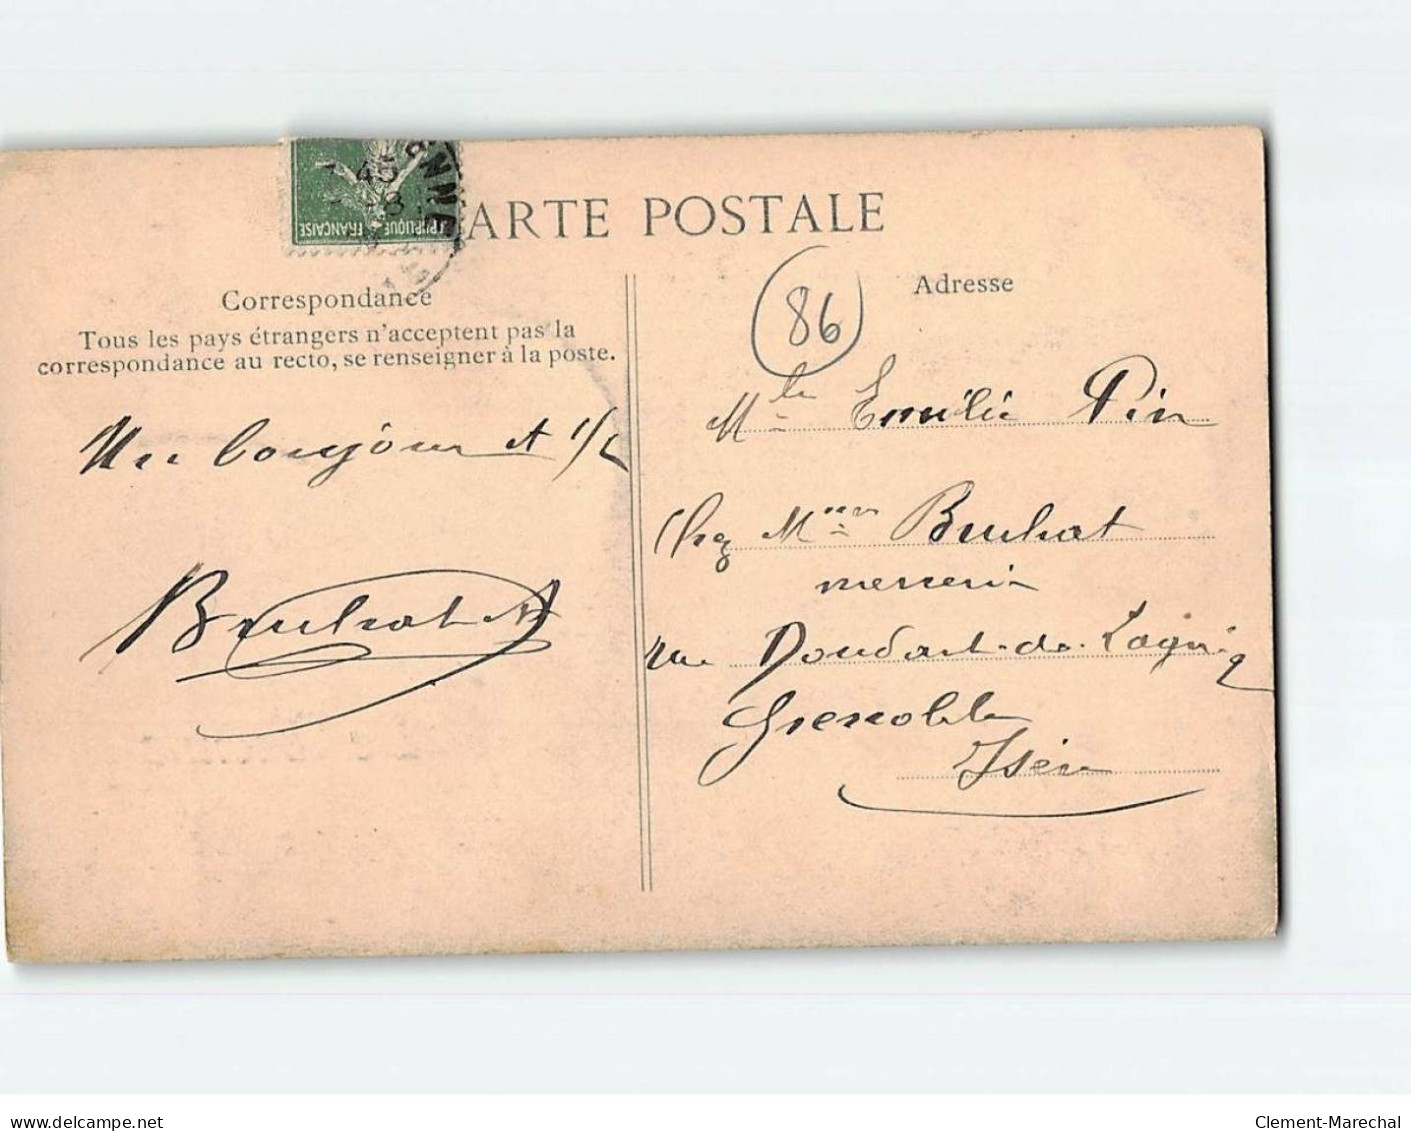 45
NNE
RÉPUBLIQUE FRANÇAISE
CARTE POSTALE
Correspondance
Tous les pays étrangers n'acceptent pas la
correspondance au recto, se renseigner à la poste.
Un bonjour
Bruhat
Adresse
86
Mlle Emilie Pin
Chez Mme Bruhat
mercerie
rue Doudart-de-Lagrée
Grenoble
Isère
delcampe.net
Clement-Marechal